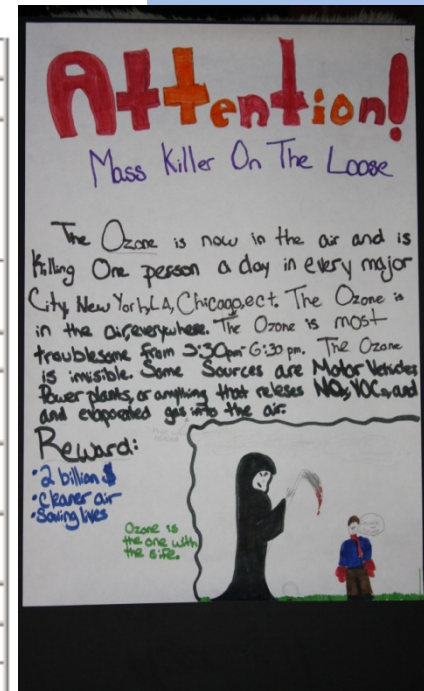 Attention!
Mass Killer On The Loose
The Ozone is now in the air and is
Killing One person a day in every major
City, New York, LA, Chicago, ect. The Ozone is
in the air, everywhere. The Ozone is most
troublesome from 3:30pm-6:30 pm. The Ozone
is invisible. Some Sources are Motor Vehicles
Power plants, or anything that releses NOx, VOCs, and
and evaporated gas into the air.
Reward:
•2 billion $
•Cleaner air
•Saving lives
Ozone is
the one with
the sife.